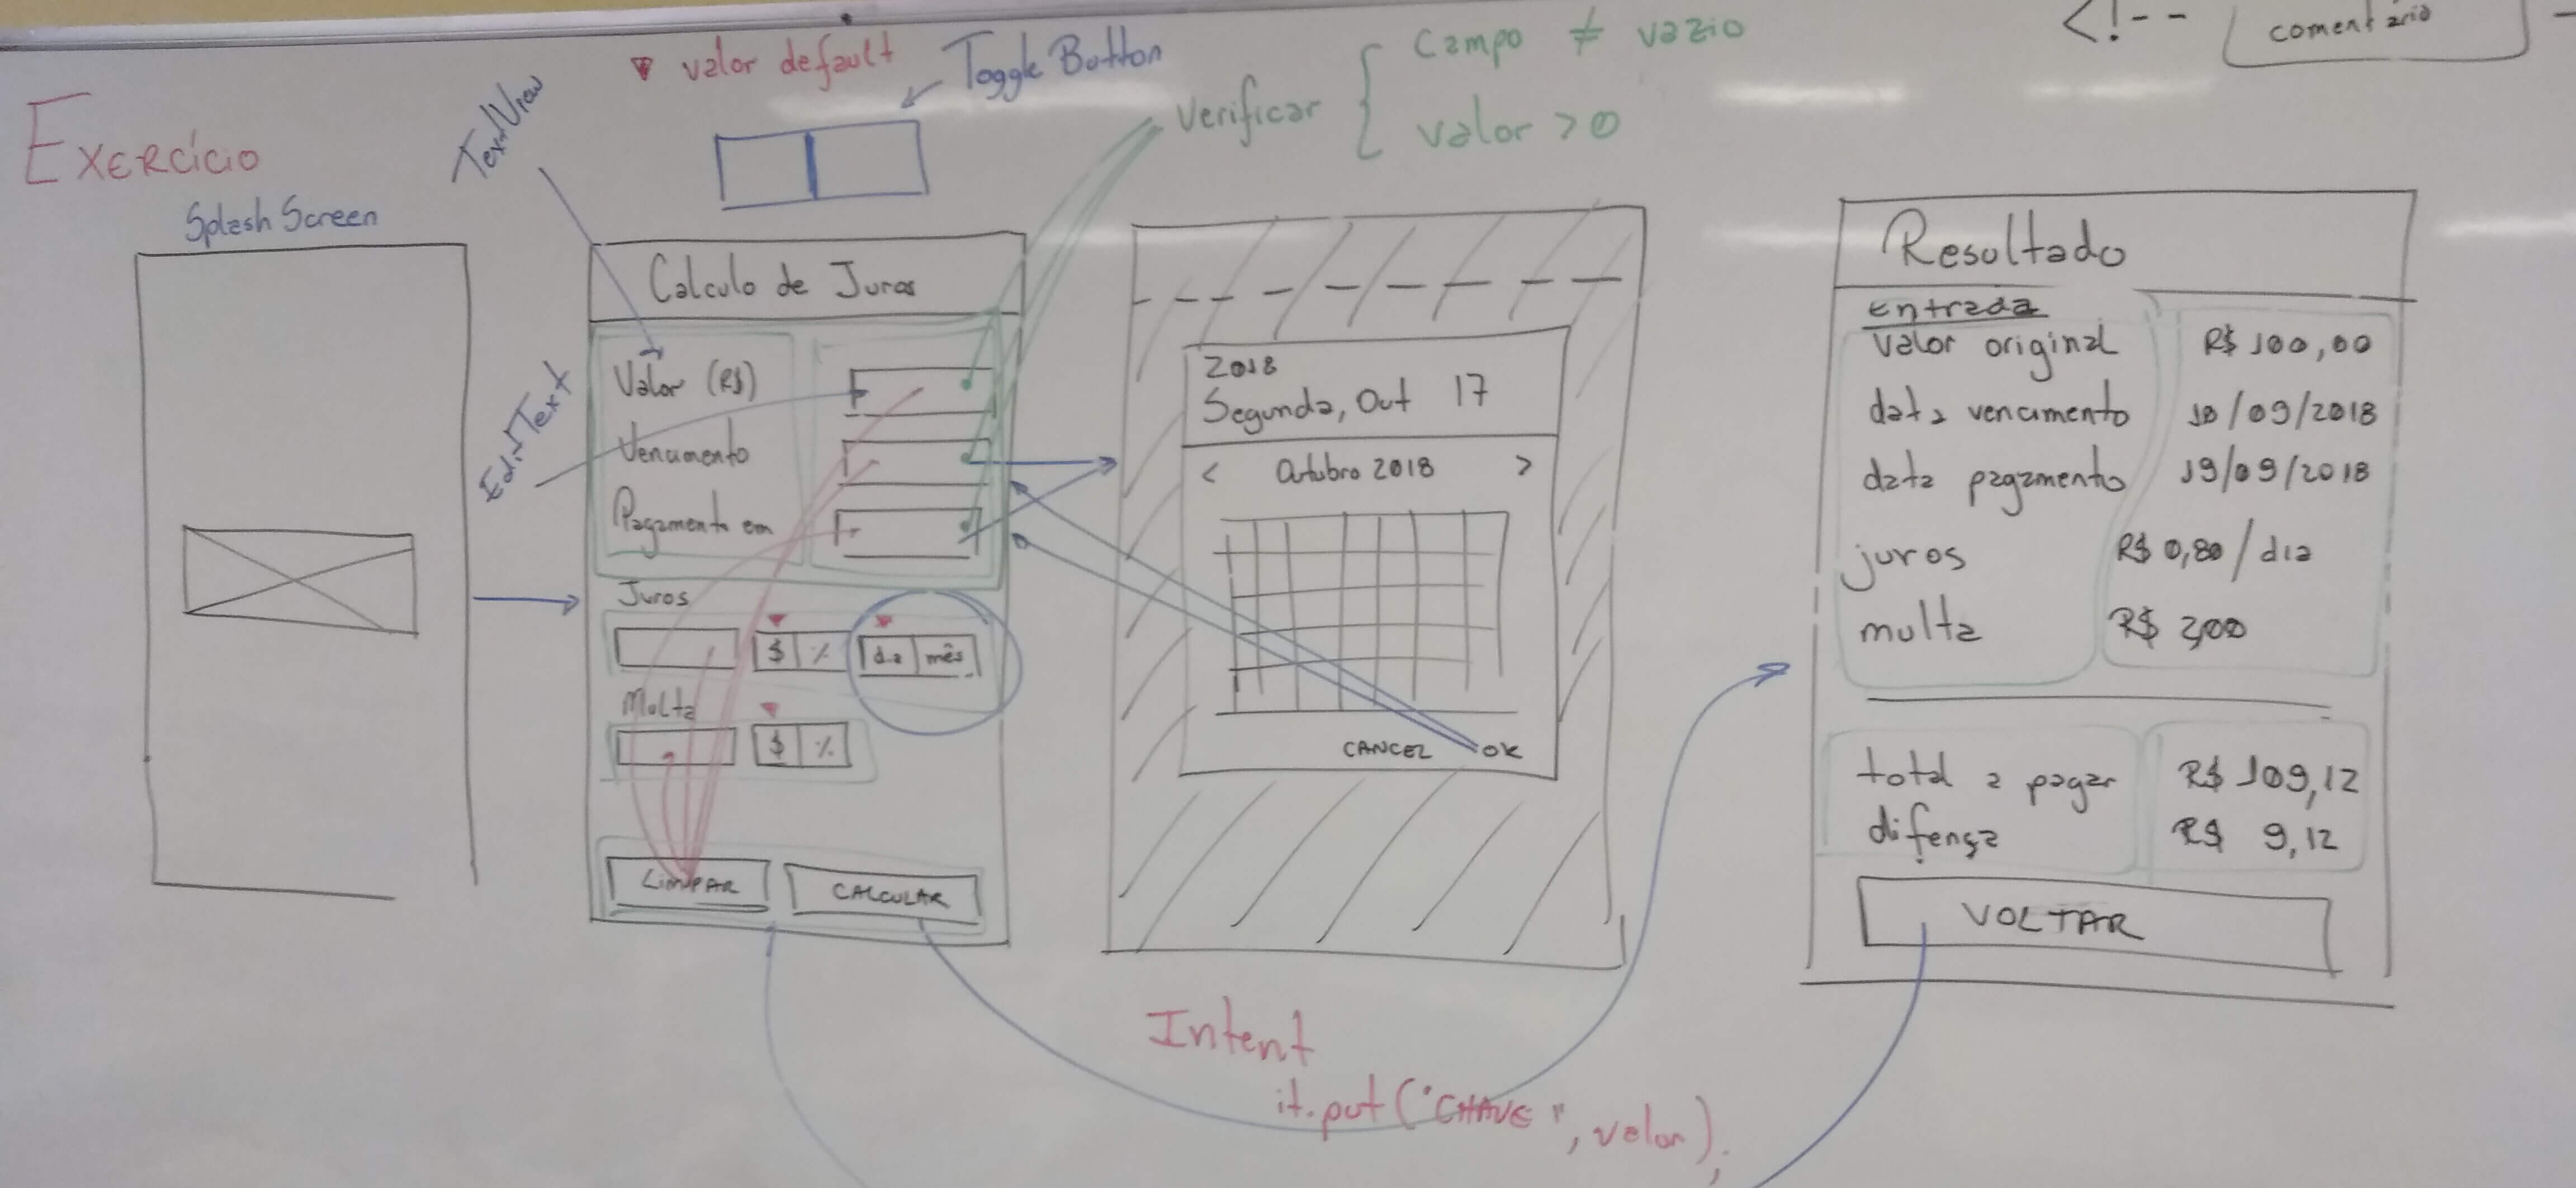 <!-- comentário
▼ valor default
Toggle Button
Verificar { Campo ≠ vazio
valor > 0
Exercício
TextView
EditText
Splash Screen
Calculo de Juros
Valor (R$)
Vencimento
Pagamento em
Juros
$ %
dia mês
Multa
$ %
LIMPAR
CALCULAR
2018
Segunda, Out 17
< Outubro 2018 >
CANCEL OK
Resultado
entrada
valor original R$ 100,00
data vencimento 10/09/2018
data pagamento 19/09/2018
juros R$ 0,80/dia
multa R$ 2,00
total a pagar R$ 109,12
difença R$ 9,12
VOLTAR
Intent
it.put("CHAVE", valor);